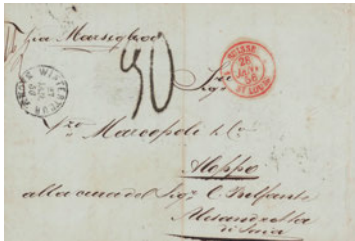 Via Marsiglia
30
SUISSE
28
JANV
56
ST LOUIS
WINTERTHUR
27
JAN
56
Sigri
Marcopoli & Co.
Aleppo
alla cura del Sigr. C. Belfante
Alessandretta
di Siria